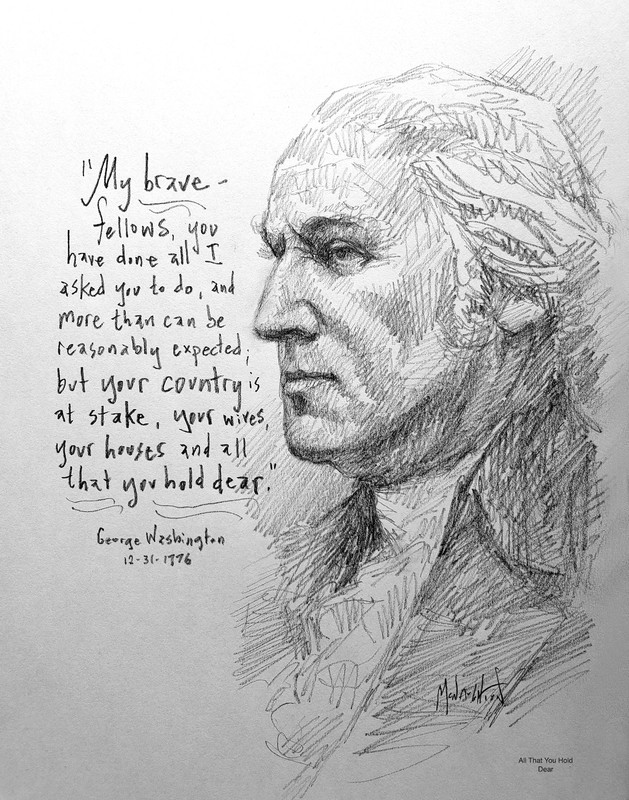 "My brave -
fellows, you
have done all I
asked you to do, and
more than can be
reasonably expected;
but your country is
at stake, your wives,
your houses and all
that you hold dear."
George Washington
12-31-1776
All That You Hold
Dear